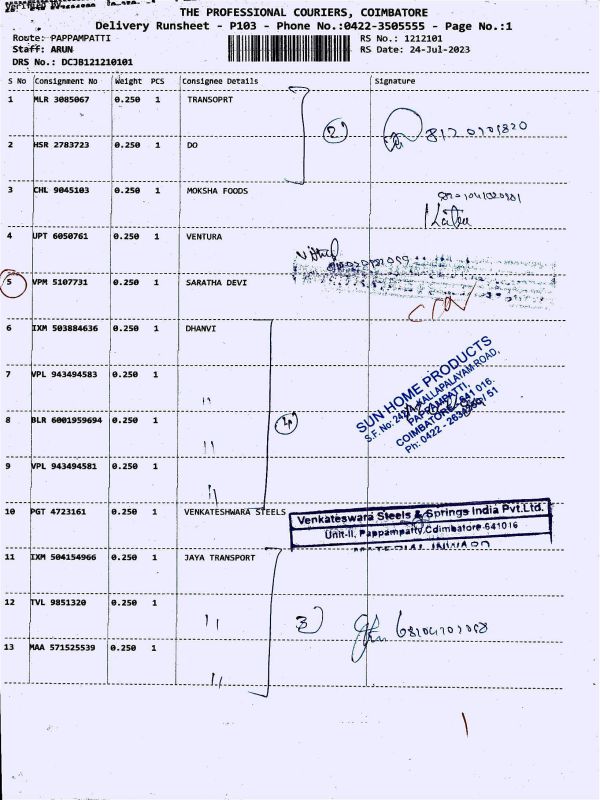 THE PROFESSIONAL COURIERS, COIMBATORE
Delivery Runsheet - P103 - Phone No.:0422-3505555 - Page No.:1
Route: PAPPAMPATTI RS No.: 1212101
Staff: ARUN RS Date: 24-Jul-2023
DRS No.: DCJB121210101
S No Consignment No Weight PCS Consignee Details Signature
1 MLR 3085067 0.250 1 TRANSOPRT
2
2 HSR 2783723 0.250 1 DO
3 CHL 9045103 0.250 1 MOKSHA FOODS
4 UPT 6050761 0.250 1 VENTURA
5 VPM 5107731 0.250 1 SARATHA DEVI
6 IXM 503884636 0.250 1 DHANVI
7 VPL 943494583 0.250 1 "
8 BLR 6001959694 0.250 1 "
4
SUN HOME PRODUCTS
PAPPAMPATTI,
9 VPL 943494581 0.250 1 "
10 PGT 4723161 0.250 1 VENKATESHWARA STEELS
Venkateswara Steels & Springs India Pvt.Ltd.
Unit-II, Pappampatty,Coimbatore-641016
MATERIAL INWARD
11 IXM 504154966 0.250 1 JAYA TRANSPORT
12 TVL 9851320 0.250 1 "
3
13 MAA 571525539 0.250 1 "